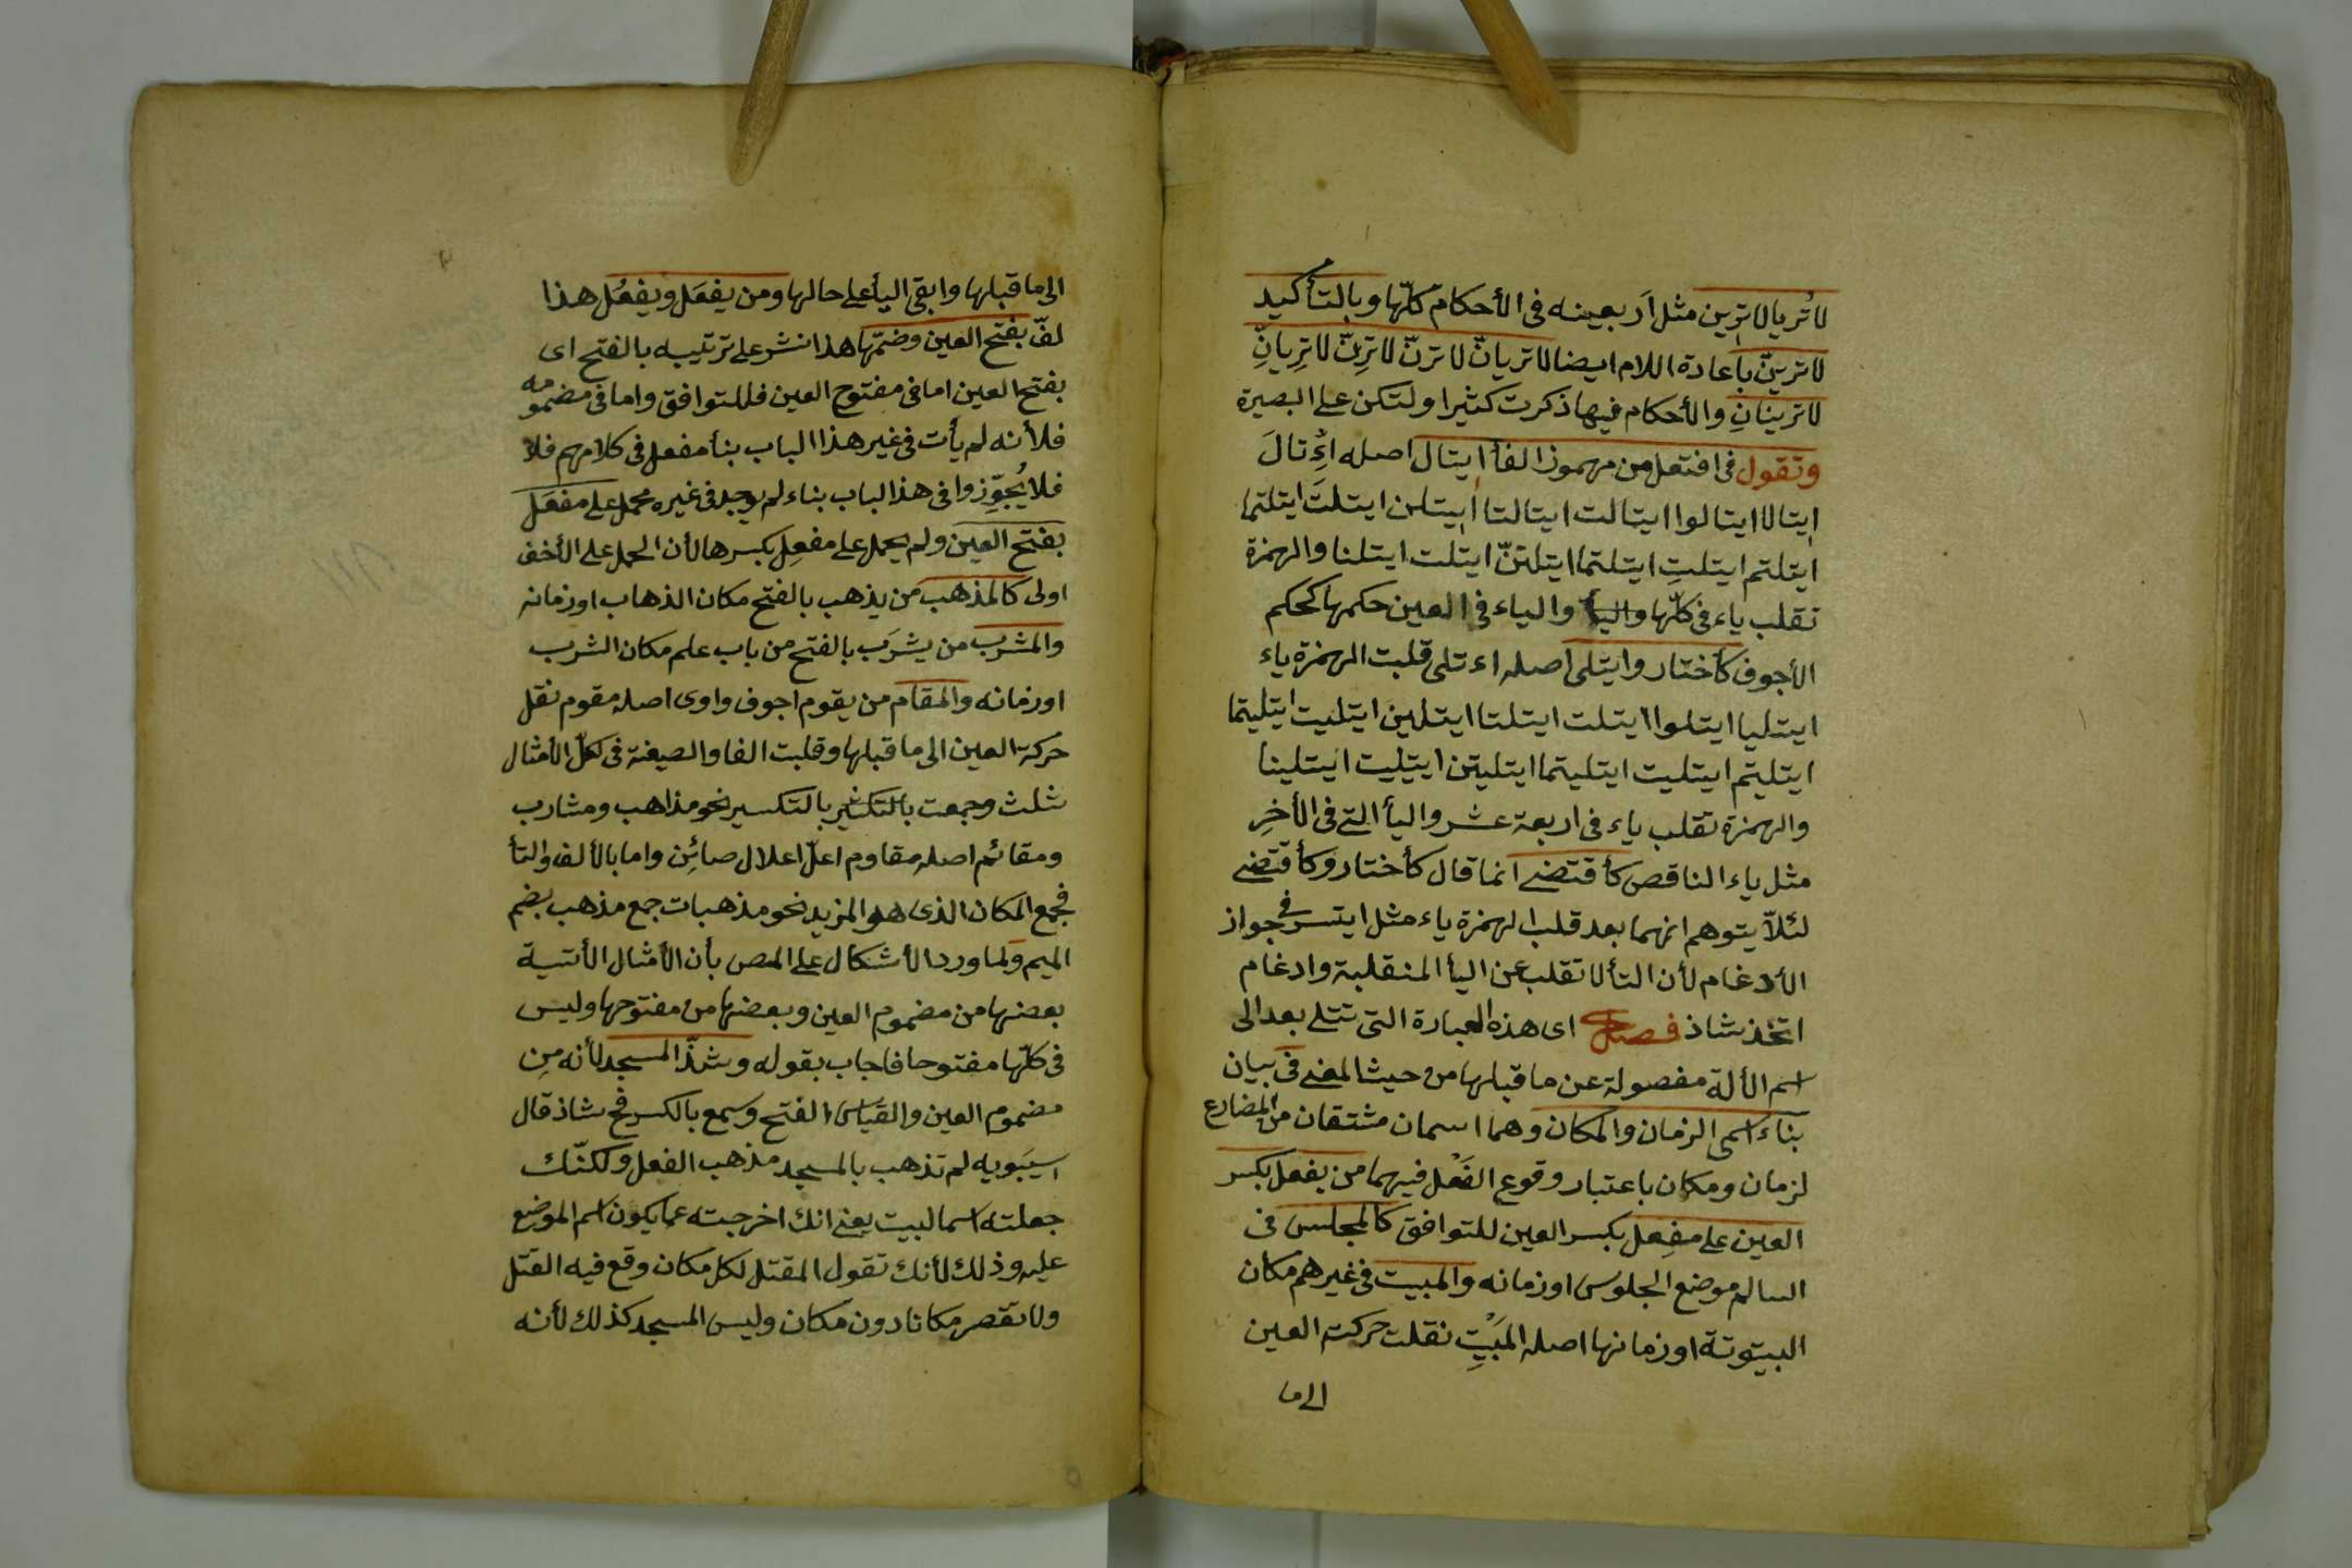 لا تُريا لا ترين مثل أَر بعينه فى الأحكام كلّها وبالتأكيد
لا تريَنّ باعادة اللام ايضا لا تريانّ لا ترنّ لا ترِنّ لا تريانِّ
لا ترينانِّ والأحكام فيها ذكرت كثيرا ولتكن على البصيرة
وتقول فى افتعل من مهموز الفأ ايتال اصله اِءْتالَ
ايتالا ايتالوا ايتالت ايتالتا ايتلن ايتلتَ ايتلتما
ايتلتم ايتلتِ ايتلتما ايتلتنّ ايتلت ايتلنا والهمزة
تقلب ياء فى كلّها والياء فى العين حكمها كحكم
الأجوف كأختار وايتلى اصله اءتلى قلبت الهمزة ياء
ايتليا ايتلوا ايتلت ايتلتا ايتلين ايتليت ايتليتما
ايتليتم ايتليت ايتليتما ايتليتن ايتليت ايتلينا
والهمزة تقلب ياء فى اربعة عشر واليأ التى فى الأخرِ
مثل ياء الناقص كأقتضى انما قال كأختار وكأقتضى
لئلاّ يتوهم انهما بعد قلب الهمزة ياء مثل ايتسر فى جواز
الأدغام لأن التأ لا تقلب عن اليأ المنقلبة وادغام
اتخذ شاذ فصل اى هذه العبارة التى تتلى بعد الى
اسم الألة مفصولة عن ما قبلها من حيث المعنى فى بيان
بناء اسمى الزمان والمكان وهما اسمان مشتقان من المضارع
لزمان ومكان باعتبار وقوع الفعل فيهما من يفعل بكسر
العين على مفعِل بكسر العين للتوافق كالمجلس فى
السالم موضع الجلوس او زمانه والمبيت فى غيرهم مكان
البيتوتة او زمانها اصله المَبْيِت نقلت حركة العين
الى ما
الى ما قبلها وابقى اليأ على حالها ومن يفعَل ويفعُل هذا
لفّ بفتح العين وضمّها هذا نشر على ترتيبه بالفتح اى
بفتح العين اما فى مفتوح العين فللتوافق واما فى مضمومه
فلأنه لم يأت فى غير هذا الباب بنأ مفعل فى كلامهم فلا
فلا يُجوِّزوا فى هذا الباب بناء لم يوجد فى غيره محمل على مفعَل
بفتح العين ولم يحمل على مفعِل بكسرها لأن الحمل على الأخف
اولى كالمذهب من يذهب بالفتح مكان الذهاب او زمانه
والمشرب من يشرَب بالفتح من باب علم مكان الشرب
او زمانه والمقام من يقوم اجوف واوى اصله مقوم نقل
حركة العين الى ما قبلها وقلبت الفا والصيغة فى لكلّ الأمثال
ثلث وجمعت بالتكثير بالتكسير نحو مذاهب ومشارب
ومقائم اصله مقاوم اعلّ اعلال صائن واما بالألف والتأ
فجمع المكان الذى هو المزيد نحو مذهبات جمع مذهب بضم
الميم ولما ورد الأشكال على المص بأن الأمثال الأتية
بعضها من مضموم العين وبعضها من مفتوحها وليس
فى كلّها مفتوحا فاجاب بقوله وشذّ المسجد لأنه مِن
مضموم العين والقياس الفتح وسمع بالكسر فح شاذ قال
سيبَويه لم تذهب بالمسجد مذهب الفعل ولكنّك
جعلته اسما لبيت يعنى انك اخرجته عما يكون اسم الموضع
عليه وذلك لأنك تقول المقتل لكل مكان وقع فيه القتل
ولا تقصر مكانا دون مكان وليس المسجد كذلك لأنه